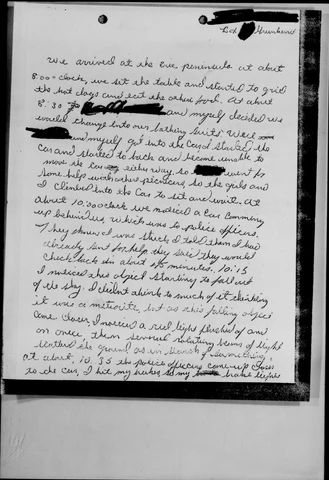 Box Greenhurst
We arrived at the Erie peninsula at about
8:00 o-clock, we set the table and started to grid
the hot dogs and eat the other food. At about
8:30 and myself decided we
would change into our bathing suits. Were
and myself got into the Car, I started the
Car and started to back and became unable to
move the car either way, so went for
some help with other picnicers, so the girls and
I Climbed into the Car to sit and wait. At
about 10:00 oclock we noticed a Car Comming
up behind us, which was to police officers.
They showed I was stuck, I told them I had
already sent for help, they said they would
Check back in about 45 minutes. 10:15
I noticed this object starting to fall out
of the sky. I didnt think to much of it thinking
it was a meteorite, but as this falling object
Came Closer, I noticed a red light flashed of and
on once, then several rotating beams of light
the ground as in search of something,
at about, 10:35 the police officers come up Closer
to the car, I hit my brakes, so my brake lights